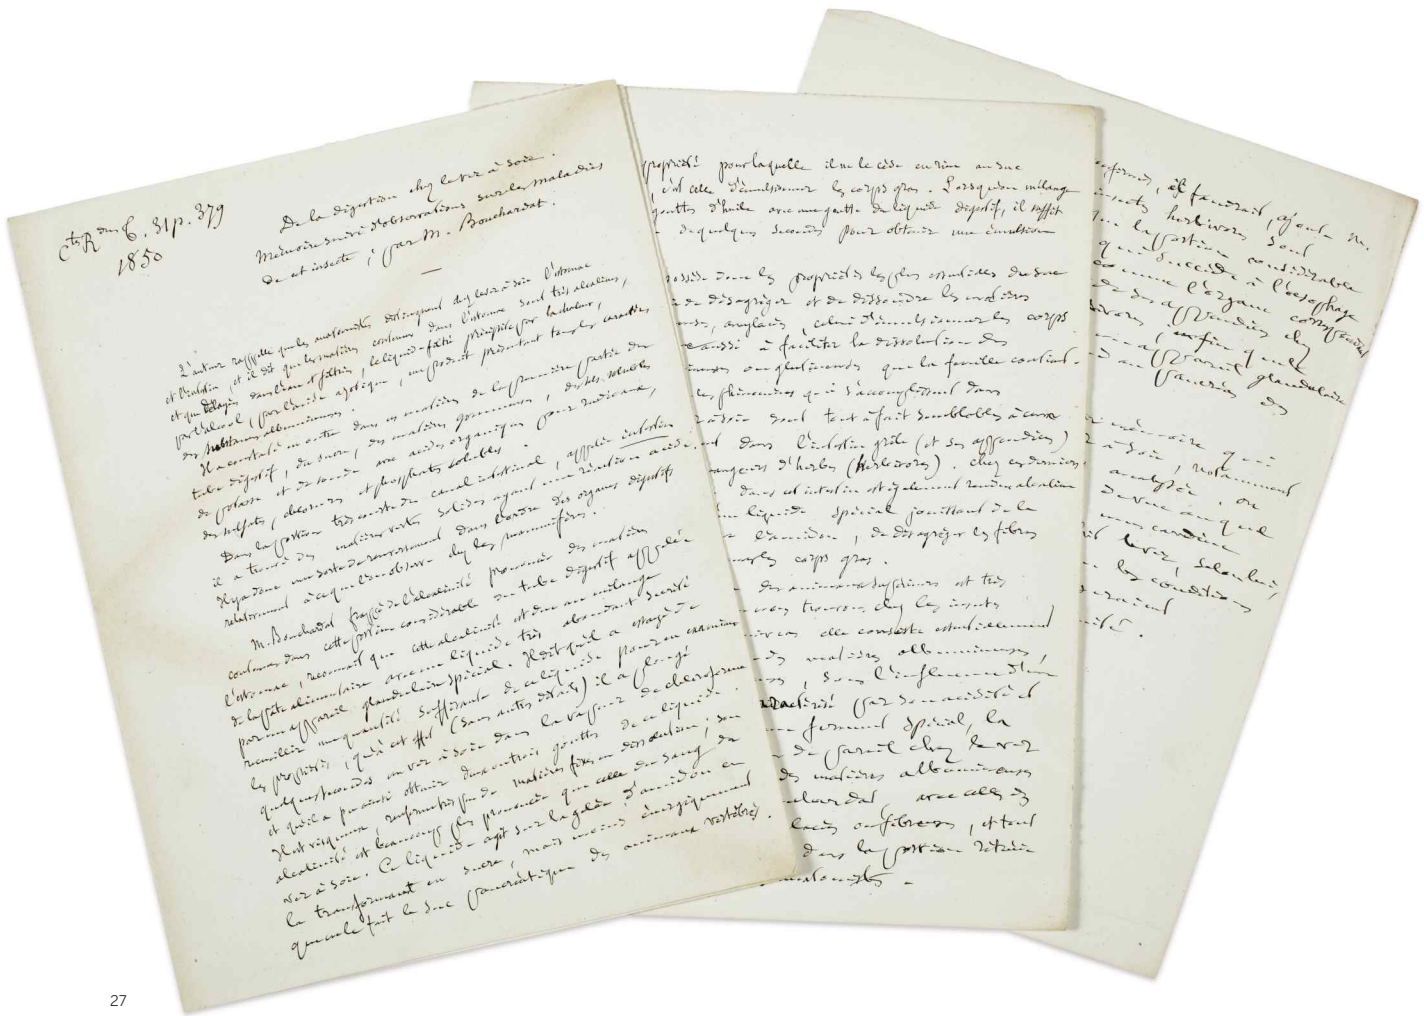 Cts Rdus t. 31 p. 379
1850
De la digestion chez le ver à soie.
Mémoire suivi d'observations sur les maladies
de cet insecte ; par M. Bouchardat.
L'auteur rappelle que les anatomistes distinguent chez le ver à soie l'estomac
et l'intestin, et il dit que les matières contenues dans l'estomac sont très alcalines,
et que délayées dans l'eau et filtrées, le liquide filtré précipite par la chaleur,
par l'alcool, par l'acide azotique, un produit présentant tous les caractères
des substances albumineuses.
Il a constaté en outre dans ces matières de la première partie du
tube digestif, du sucre, des matières gommeuses, des sels solubles
de potasse et de soude avec acides organiques pour radicaux,
des sulfates, chlorures et phosphates solubles.
Dans la portion très courte du canal intestinal, appelée intestin
il a trouvé des matières vertes solides ayant une réaction acide.
Il y a donc une sorte de renversement dans l'ordre des organes digestifs
relativement à ce que l'on observe chez les mammifères.
M. Bouchardat frappé de l'alcalinité prononcée des matières
contenues dans cette portion considérable du tube digestif appelée
l'estomac, reconnait que cette alcalinité est due au mélange
de la pâte alimentaire avec un liquide très abondant sécrété
par un appareil glandulaire spécial. Il dit qu'il a essayé de
recueillir une quantité suffisante de ce liquide pour en examiner
les propriétés, qu'à cet effet (sans autres détails) il a plongé
quelques secondes un ver à soie dans la vapeur de chloroforme
et qu'il a pu ainsi obtenir deux ou trois gouttes de ce liquide.
Il est visqueux, renferme très peu de matières fixes en dissolution ; son
alcalinité est beaucoup plus prononcée que celle du sang du
ver à soie. Ce liquide agit sur la gelée d'amidon en
la transformant en sucre, mais moins énergiquement
que ne le fait le suc pancréatique des animaux vertébrés.
propriété pour laquelle il ne le cède en rien au suc
, c'est celle d'émulsionner les corps gras. Lorsqu'on mélange
gouttes d'huile avec une goutte de liquide digestif, il suffit
de quelques secondes pour obtenir une émulsion
possède donc les propriétés les plus essentielles du suc
de désagréger et de dissoudre les matières
, celui d'émulsionner les corps
aussi à faciliter la dissolution des
ou glutineuses que la feuille contient.
les phénomènes qui s'accomplissent dans
à soie sont tout à fait semblables à ceux
dans l'intestin grêle (et ses appendices)
mangeurs d'herbes (herbivores). chez ces derniers,
dans cet intestin est également rendue alcaline
un liquide spécial jouissant de la
l'amidon, de désagréger les fibres
les corps gras.
des animaux supérieurs et très
nous trouvons chez les insectes
elle consiste essentiellement
des matières albumineuses,
, sous l'influence d'un
caractérisé par son acidité et
ferment spécial, la
de pareil chez le ver
des matières albumineuses
, avec celles des
ou fibreuses, et tout
dans la portion
anatomistes.
, il faudrait, ajoute M.
insectes herbivores sont
que la portion considérable
qui succède à l'oesophage
comme l'organe correspondant
de ses appendices chez
(enfin que
appareil glandulaire
au pancréas des
mémoire qui
à soie, notamment
analysée, ou
de vue auquel
muscardine
le ver, selon lui,
les conditions